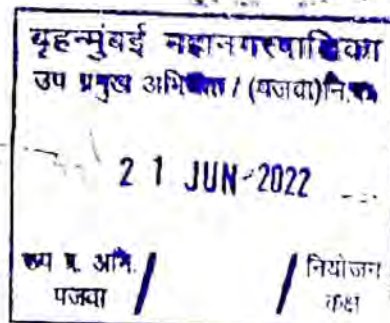 बृहन्मुंबई महानगरपालिका
उप प्रमुख अभियंता / (पजवा)नि.
2 1 JUN 2022
प्र. अभि. / / नियोजन
पजवा कक्ष